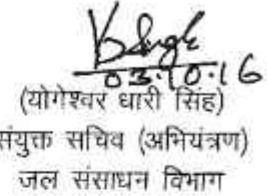 03.10.16
(योगेश्वर धारी सिंह)
संयुक्त सचिव (अभियंत्रण)
जल संसाधन विभाग